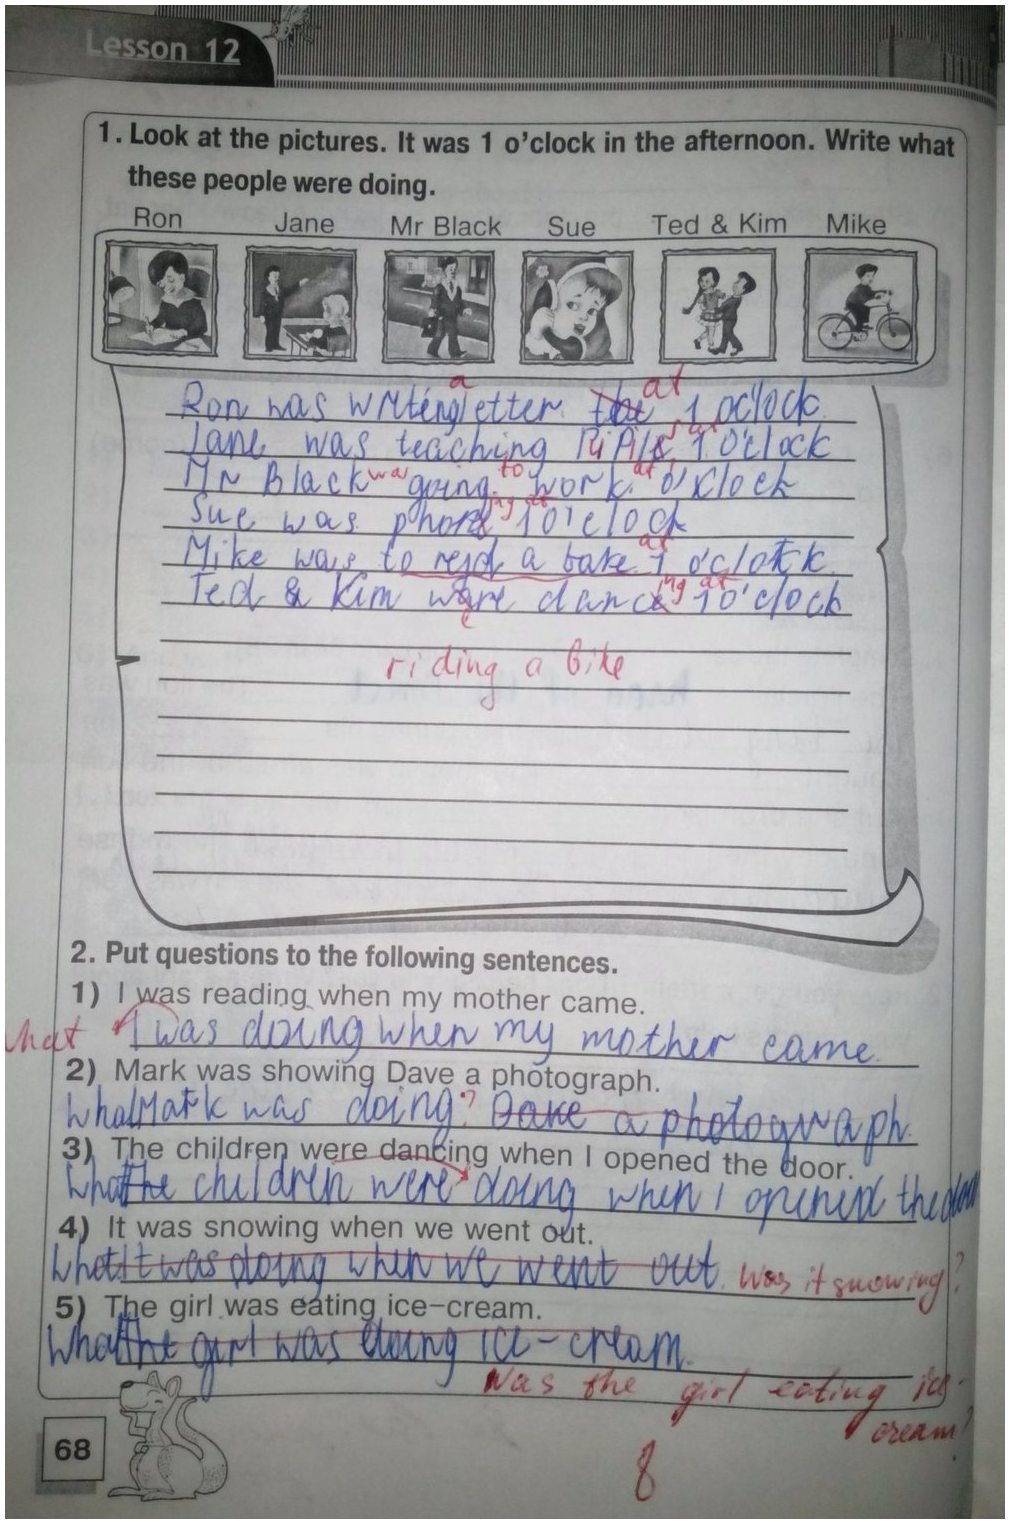 Lesson 12
1. Look at the pictures. It was 1 o'clock in the afternoon. Write what
these people were doing.
Ron Jane Mr Black Sue Ted & Kim Mike
a at
Ron was writing letter the 1 o'clock
Jane was teaching pupils at 1 o'clock
Mr Black was going to work at o'clock
Sue was phone ing at 1 o'clock
Mike was to read a bake at 1 o'clock
Ted & Kim were dance ing at 1 o'clock
e
riding a bike
2. Put questions to the following sentences.
1) I was reading when my mother came.
What I was doing when my mother came.
2) Mark was showing Dave a photograph.
What Mark was doing? a photograph.
3) The children were dancing when I opened the door.
What the children were doing when I opened the door
4) It was snowing when we went out.
What It was doing when we went out. Was it snowing?
5) The girl was eating ice-cream.
What the girl was doing ice-cream.
Was the girl eating ice-
cream?
68
8